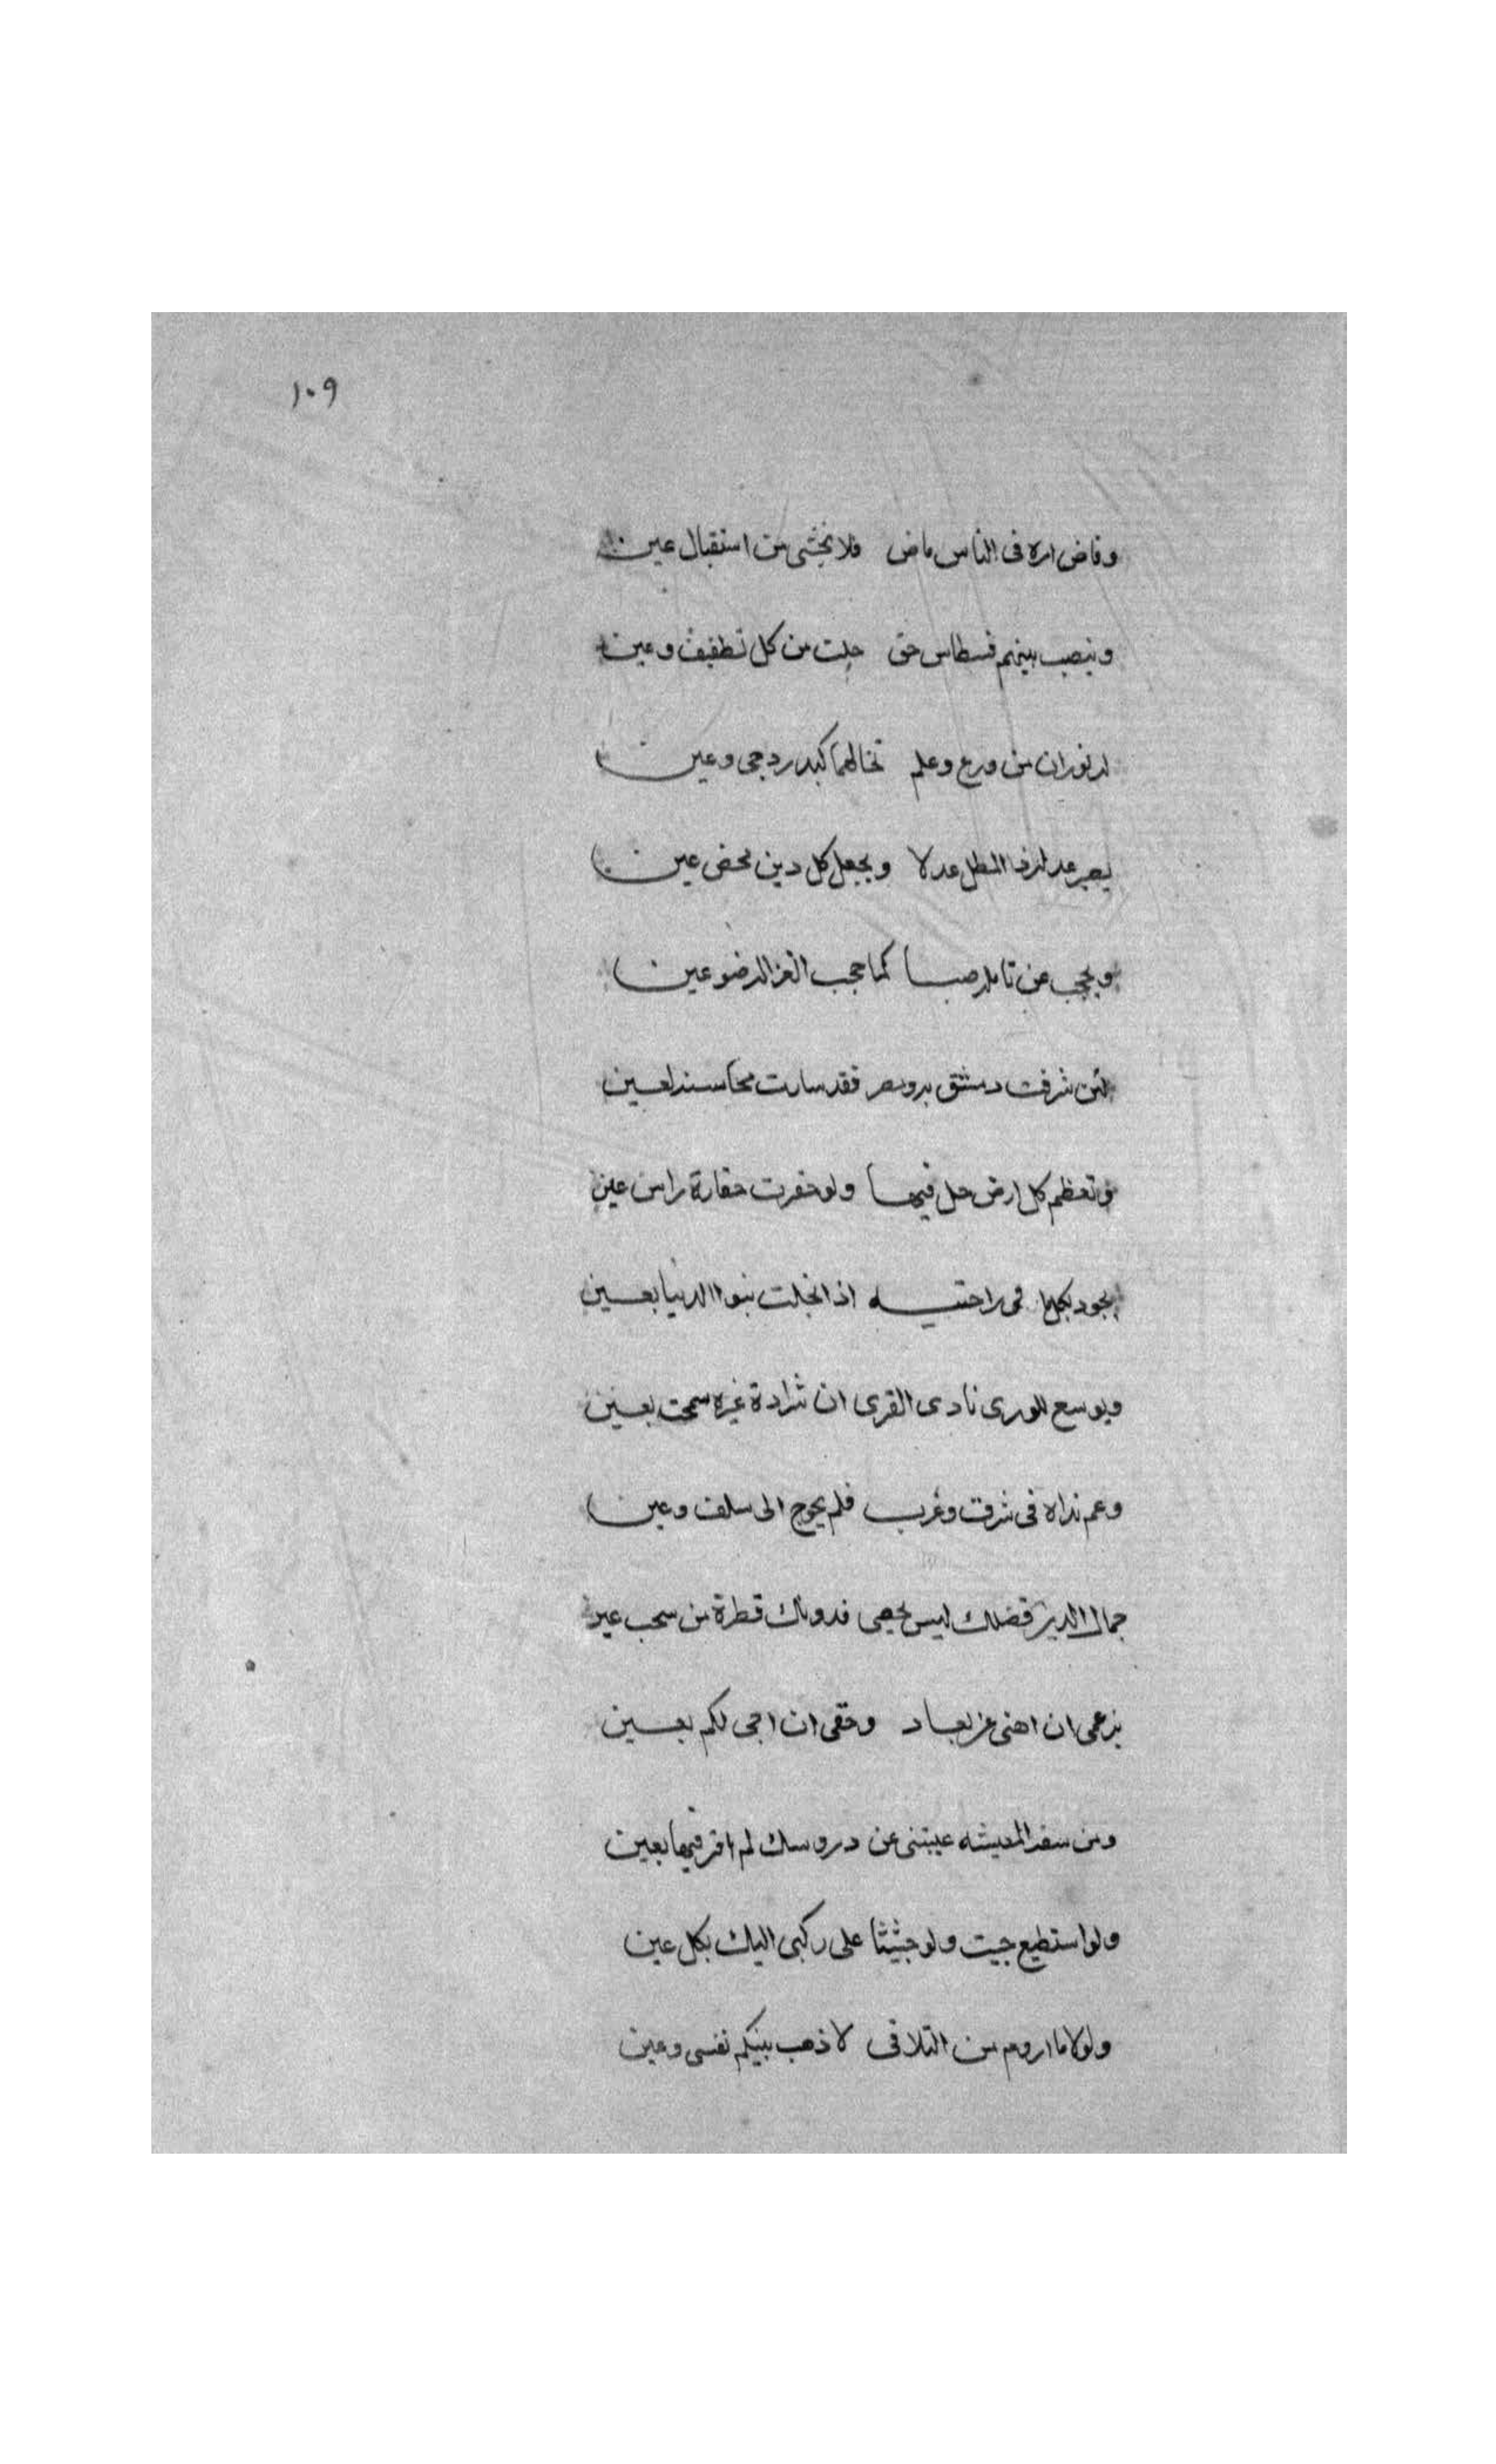 ١٠٩
وقاض امره فى الناس ماض فلا تخشى من استقبال عين
وينصب بينهم قسطاس حق خلت من كل تطفيف وعين
له نوران من ورع وعلم تخالهما كبدر دجى وعين
يصير عدله ذا المطل عدلا ويجعل كل دين محض عين
ويحجب عن تا صبا كما حجب الغزاله ضوء عين
لئن شرفت دمشق به ومصر فقد سارت محاسنه لعين
وتعظم كل ارض حل فيها ولو حقرت حقارة راس عين
يجود بكلما فى راحتيه اذا بخلت بنوا الدنيا بعين
ويوسع للورى نادى القرى ان ثرادة غيره سمحت بعين
وعم نداه فى شرق وغرب فلم يحوج الى سلف وعين
جمال الدين فضلك ليس يحصى فدونك قطرة من سحب عين
بزعمى ان اهنى عن بعاد وحقى ان اجى لكم بعين
ومن سغد المعيشه غيبتى عن دروسك لم افز فيها بعين
ولو استطيع جيت ولو جثيثا على ركبى اليك بكل عين
ولولا ما اروم من التلاقى لاذهب بينكم نفسى وعين